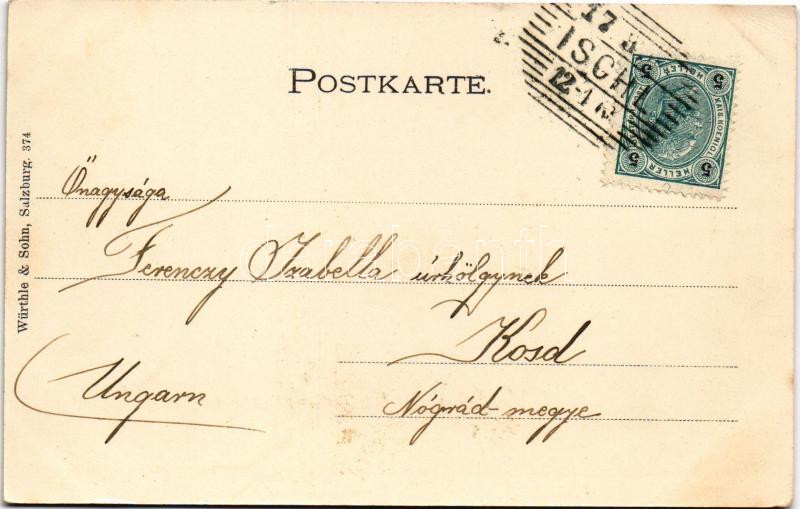 POSTKARTE.
17
ISCHL
12-1
KAIS. KOENIGL.
HELLER
HELLER
5
5
5
5
Önagysága
Ferenczy Izabella úrhölgynek
Kosd
Ungarn
Nógrád-megye
Würthle & Sohn, Salzburg. 374
darabanth